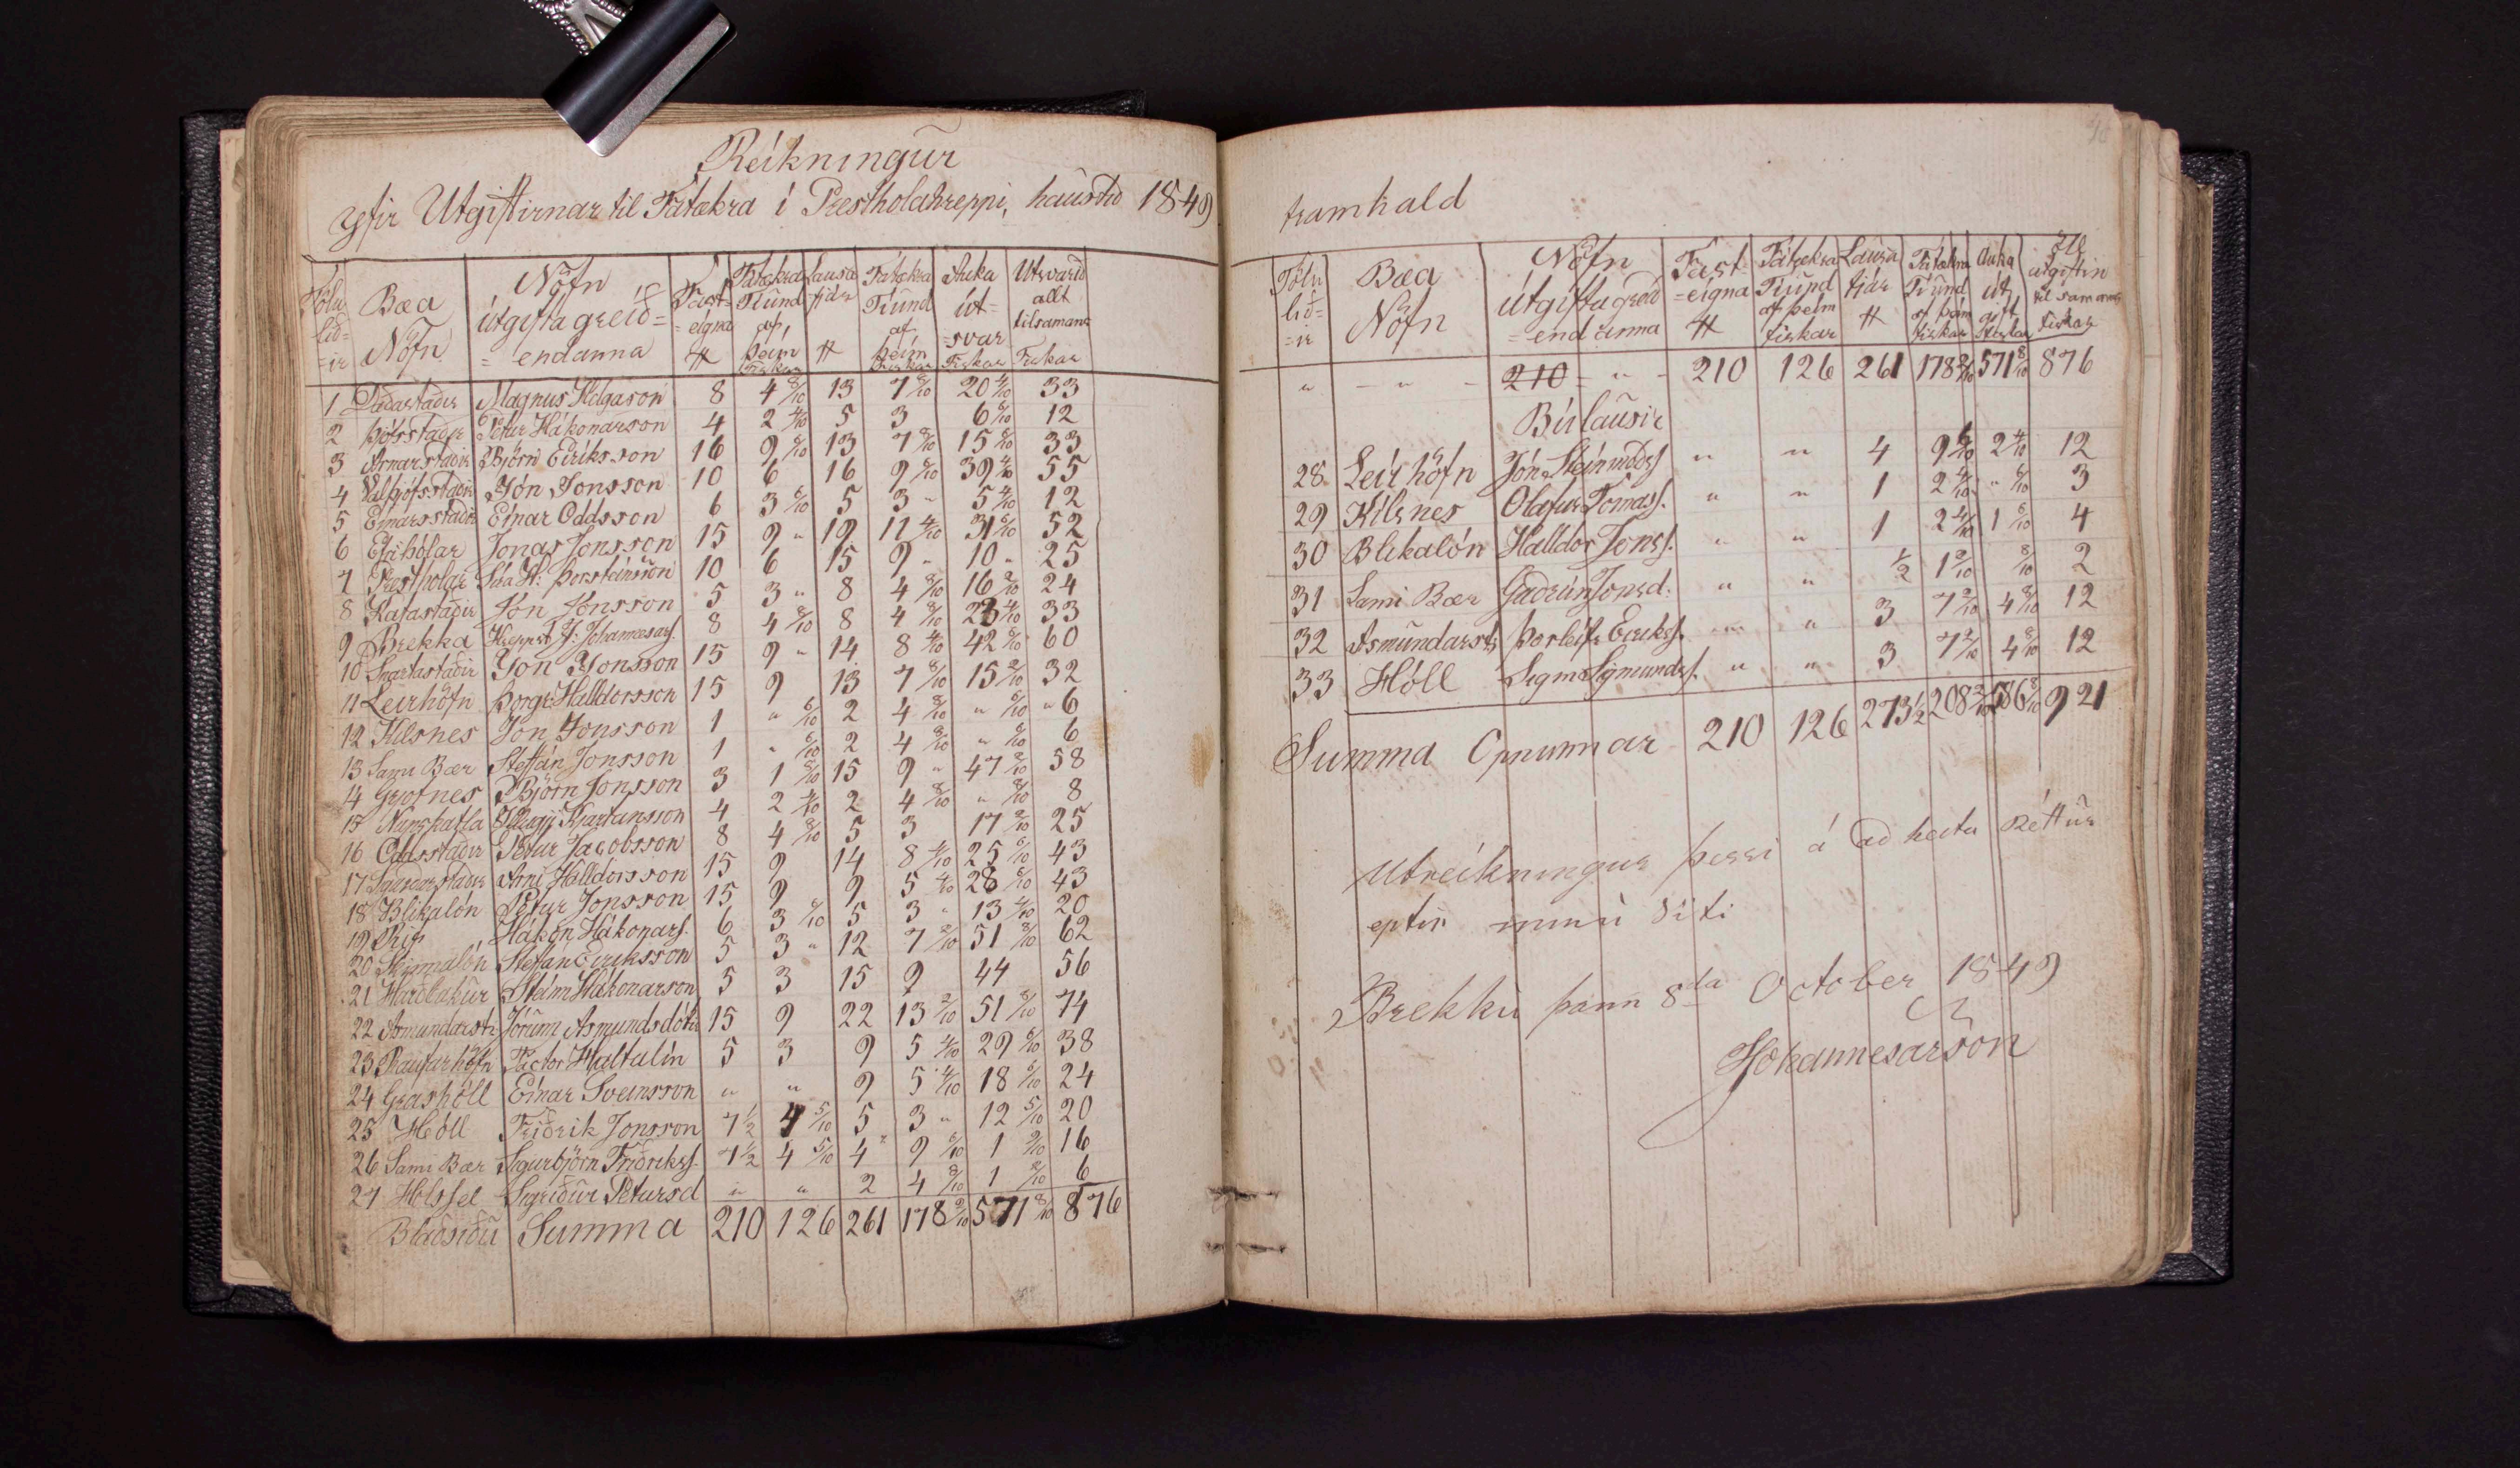 Reikningur
yfir Utgiftirnar til Fátækra í Presthólahreppi, haustid 1849
Tölu lið= =ir | Bæa Nöfn | Nöfn útgifta greið= = endanna | Fast= = eigna # | Fátækra Tíund af þeim Fiskar | Lausa fjár # | Fátækra Tíund af þeim Fiskar | Auka út= =svar Fiskar | Utsvarid allt tilsamans Fiskar
1 Daðastaðir Magnus Helgason 8 4 8/10 13 7 8/10 20 4/10 33
2 Þjófsstaðir Petur Hákonarson 4 2 4/10 5 3 6 6/10 12
3 Arnarstaðir Björn Eiríksson 16 9 6/10 13 7 8/10 15 6/10 33
4 Valþjófsstaðir Jón Jonsson 10 6 16 9 6/10 39 4/10 55
5 Einarsstaðir Einar Oddsson 6 3 6/10 5 3 " 5 4/10 12
6 Efrihólar Jonas Jonsson 15 9 " 19 11 4/10 31 6/10 52
7 Presthólar Séra St: Þorsteinsson 10 6 15 9 " 10 " 25
8 Katastaðir Jón Jónsson 5 3 " 8 4 8/10 16 2/10 24
9 Brekka Hreppst J: Johannesars. 8 4 8/10 8 4 8/10 23 4/10 33
10 Snartastaðir Jón Jonsson 15 9 " 14 8 4/10 42 6/10 60
11 Leirhöfn Þorgr Halldorsson 15 9 13 7 8/10 15 2/10 32
12 Kilsnes Jon Jonsson 1 " 6/10 2 4 8/10 " 6/10 " 6
13 Sami Bær Steffán Jonsson 1 " 6/10 2 4 8/10 " 6/10 6
14 Grjotnes Björn Jonsson 3 1 8/10 15 9 " 47 2/10 58
15 Nupskatla Kjartansson 4 2 4/10 2 4 8/10 " 8/10 8
16 Oddsstaðir Pétur Jacobsson 8 4 8/10 5 3 17 2/10 25
17 Sigurdarstaðir Arni Halldorsson 15 9 14 8 4/10 25 6/10 43
18 Blikalón Pétur Jonsson 15 9 9 5 4/10 28 6/10 43
19 Rif Hákon Hákonars. 6 3 6/10 5 3 " 13 4/10 20
20 Skinnalón Stefán Eiríksson 5 3 " 12 7 2/10 51 8/10 62
21 Harðbakur Steinn Hákonarson 5 3 15 9 44 56
22 Asmundarst: Jórunn Asmundsdótt 15 9 22 13 2/10 51 8/10 74
23 Raufarhöfn Factor Hialtalín 5 3 9 5 4/10 29 6/10 38
24 Grashóll Einar Sveinsson " " 9 5 4/10 18 6/10 24
25 Hóll Friðrik Jonsson 7 1/2 4 5/10 5 3 " 12 5/10 20
26 Sami Bær Sigurbjörn Friðrikss. 7 1/2 4 5/10 4 9 6/10 1 9/10 16
27 Holssel Sigriður Petursd " " 2 4 8/10 1 2/10 6
Blaðsiðu Summa 210 126 261 178 2/10 571 8/10 876
framhald
Tölu lið= =ir | Bæa Nöfn | Nöfn útgifta greið =endanna | Fast =eigna # | Fátækra Tiund af þeim fiskar | Lausa fjár # | Fátækra Tiund af þeim fiskar | Auka út gift fiskar | utgiftin til samans fiskar
" - " - 210 = " - 210 126 261 178 2/10 571 8/10 876
Búlausir
28 Leirhöfn Jón Steinmóðss " " 4 9 6/10 2 4/10 12
29 Kilsnes Olafur Tómass. " " 1 2 4/10 " 6/10 3
30 Blikalón Halldor Jonss. " " 1 2 4/10 1 6/10 4
31 Sami Bær Guðrún Jonsd. " " 1/2 1 2/10 8/10 2
32 Asmundarst: Þorleifr Eirikss. " " 3 7 2/10 4 8/10 12
33 Hóll Sigm Sigmundss. " " 3 7 2/10 4 8/10 12
Summa Opnunnar 210 126 273 1/2 208 2/10 586 8/10 921
Utreikningur þessi á að heita réttur
eptir minni viti
Brekku þann 8da October 1849
Johannesarson